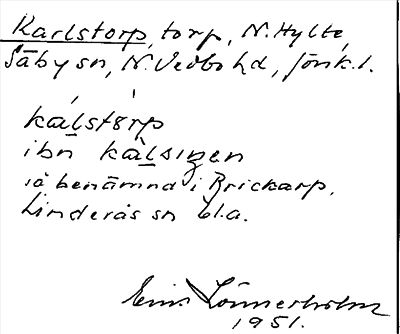 Karlstorp, torp, N. Hylte,
Säby sn, N. Vedbo hd, Jönk. l.
kálstərp
ibn kàlsıŋen
så benämnd i Brickarp,
Linderås sn bl.a.
Einar Lönnerholm
1951.